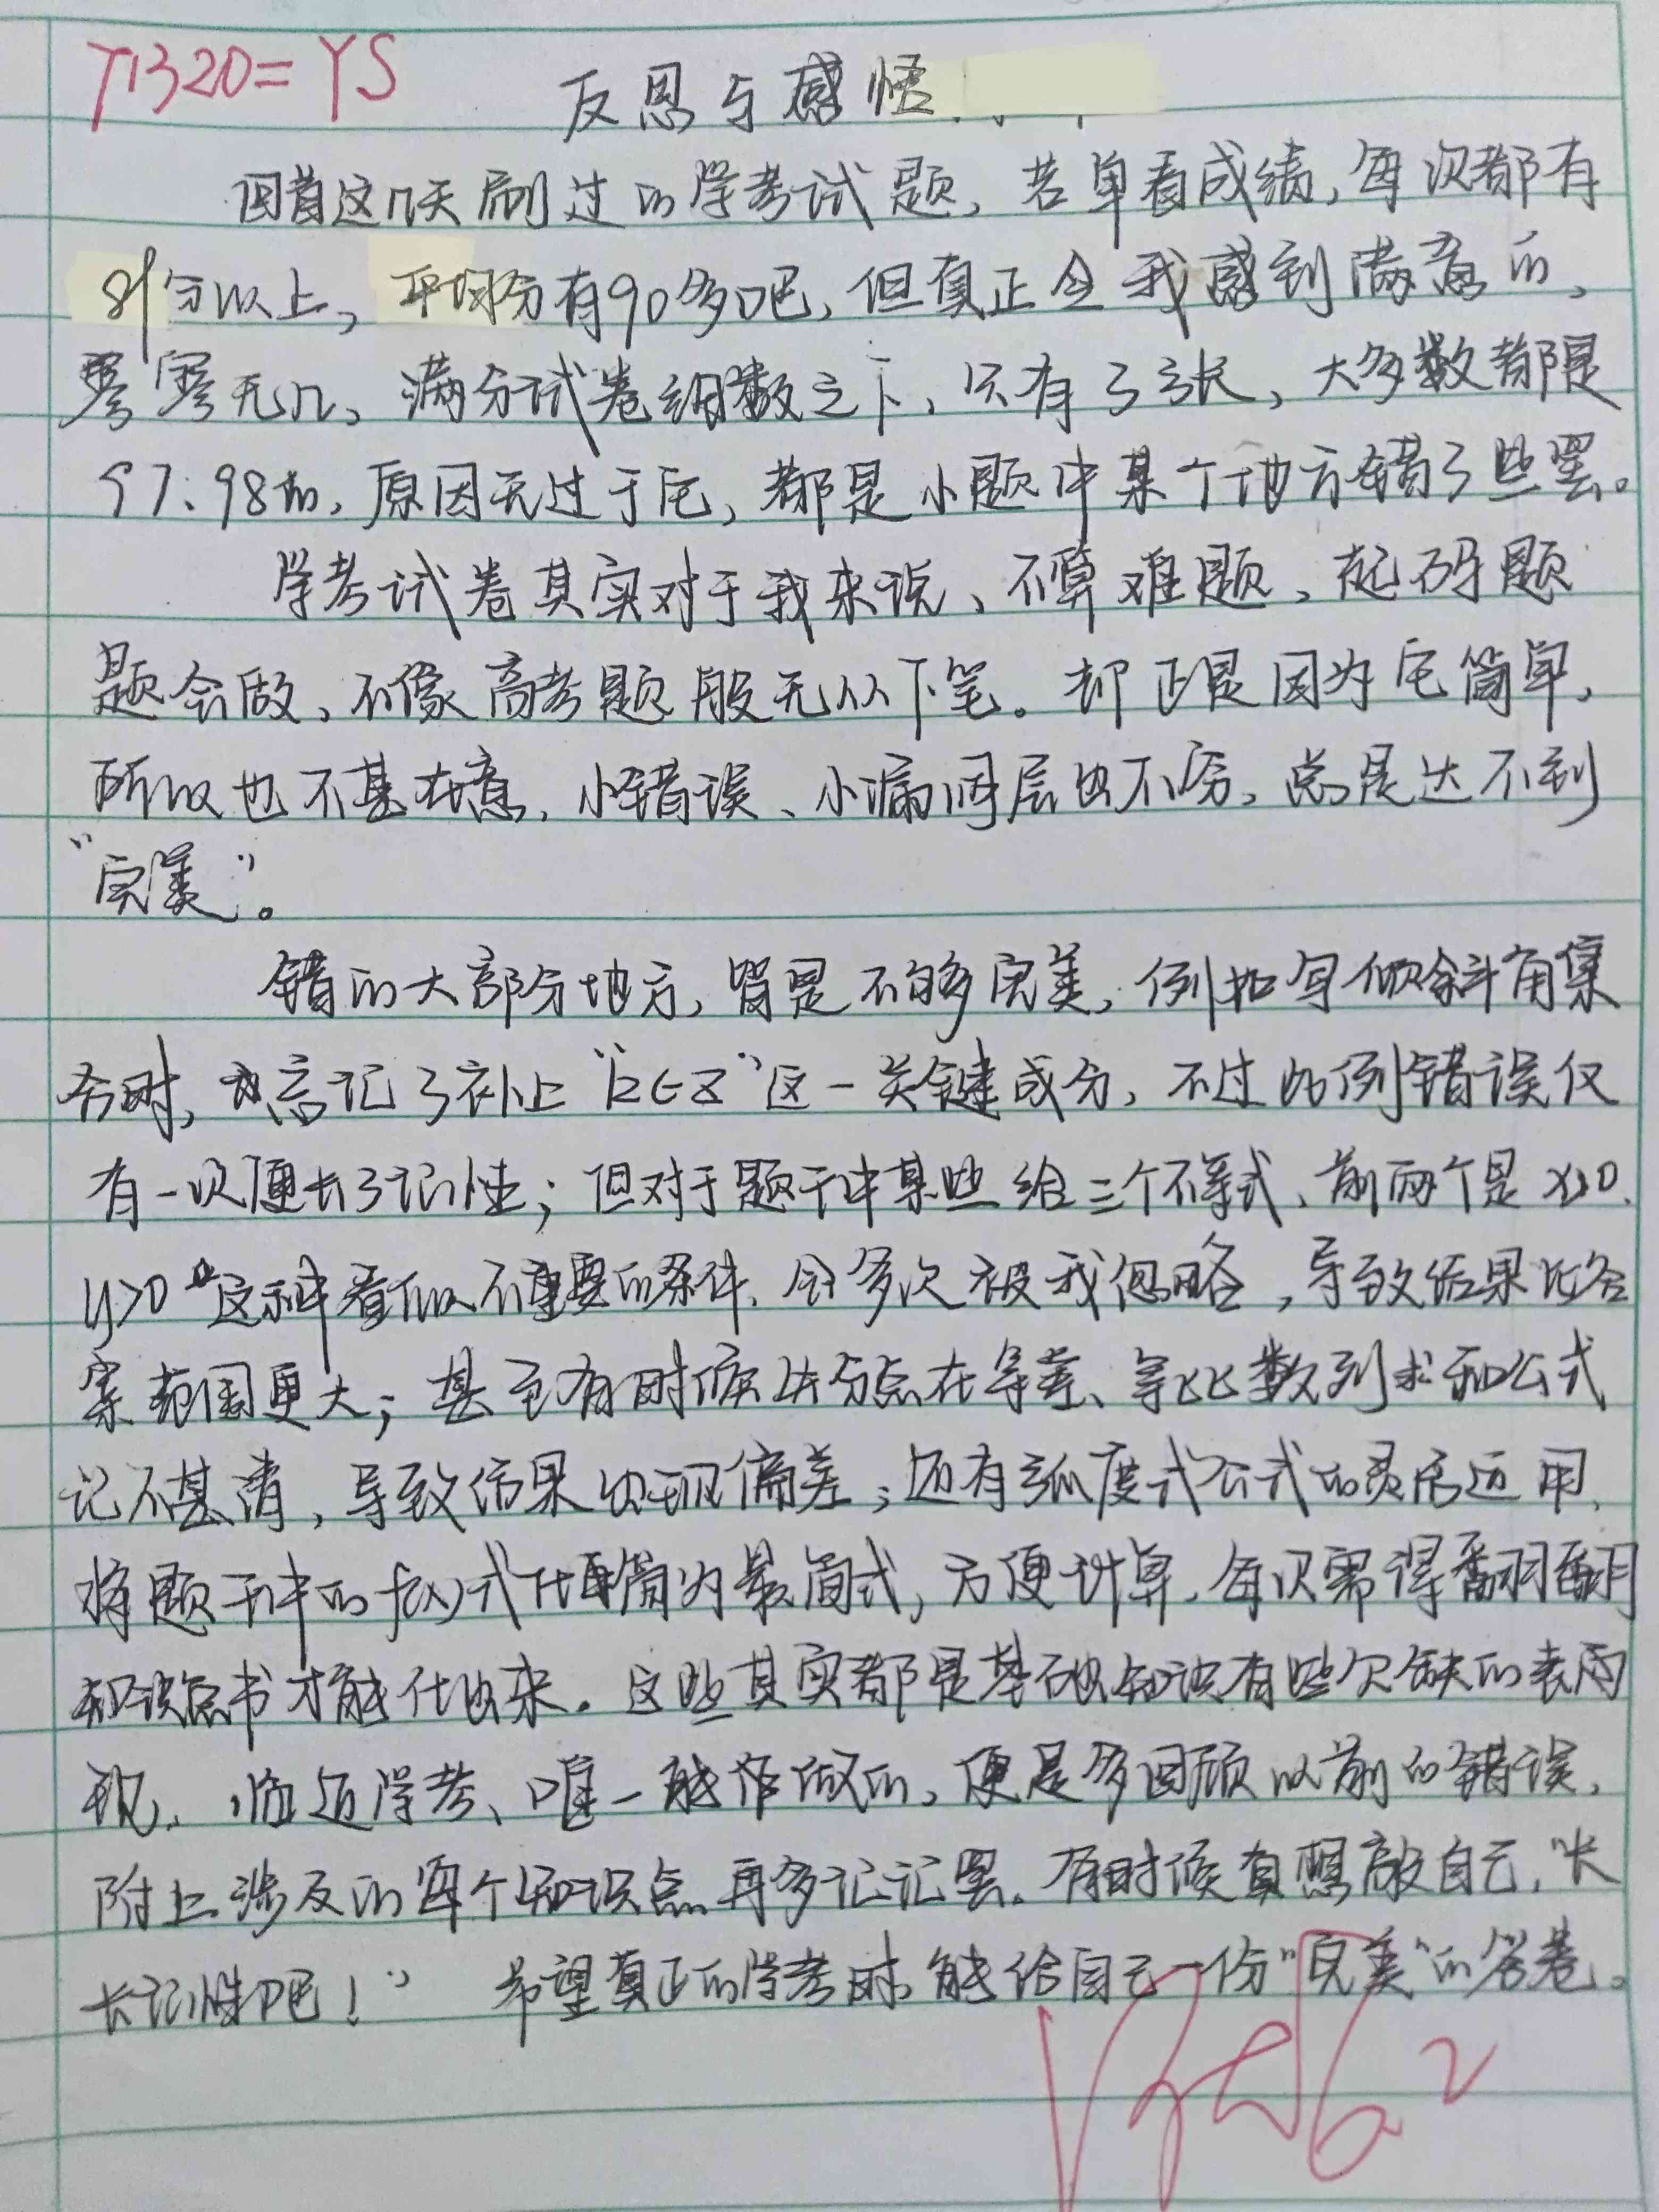 T1320=YS
反思与感悟
回首这几天刷过的学考试题，若单看成绩，每次都有
81分以上，平均分有90多吧，但真正令我感到满意的，
寥寥无几，满分试卷细数之下，只有了3张，大多数都是
97、98的，原因无过于它，都是小题中某个地方错了些罢。
学考试卷其实对于我来说、不算难题，起码题
题会做，不像高考题般无从下笔。却正是因为它简单，
所以也不甚在意，小错误、小漏洞层出不穷，总是达不到
“完美”。
错的大部分地方，皆是不够完美，例如写倾斜角集
合时，忘记了补上“k∈Z”这一关键成分，不过此例错误仅
有一次便长了记性；但对于题干中某些给三个不等式、前两个是x>0,
y>0 这种看似不重要的条件，会多次被我忽略，导致结果比答
案范围更大；甚至有时候失分点在等差、等比数列求和公式
记不甚清，导致结果出现偏差；还有弧度式公式的灵活运用，
将题干中的f(x)式化简为最简式，方便计算，每次需得翻翻
知识点书才能化出来。这些其实都是基础知识有些欠缺的表
现，临近学考、唯一能做的，便是多回顾以前的错误，
附上涉及的每个知识点再多记记罢。有时候真想敲自己，“长
长记性吧！” 希望真正的学考时，能给自己一份“完美”的答卷。